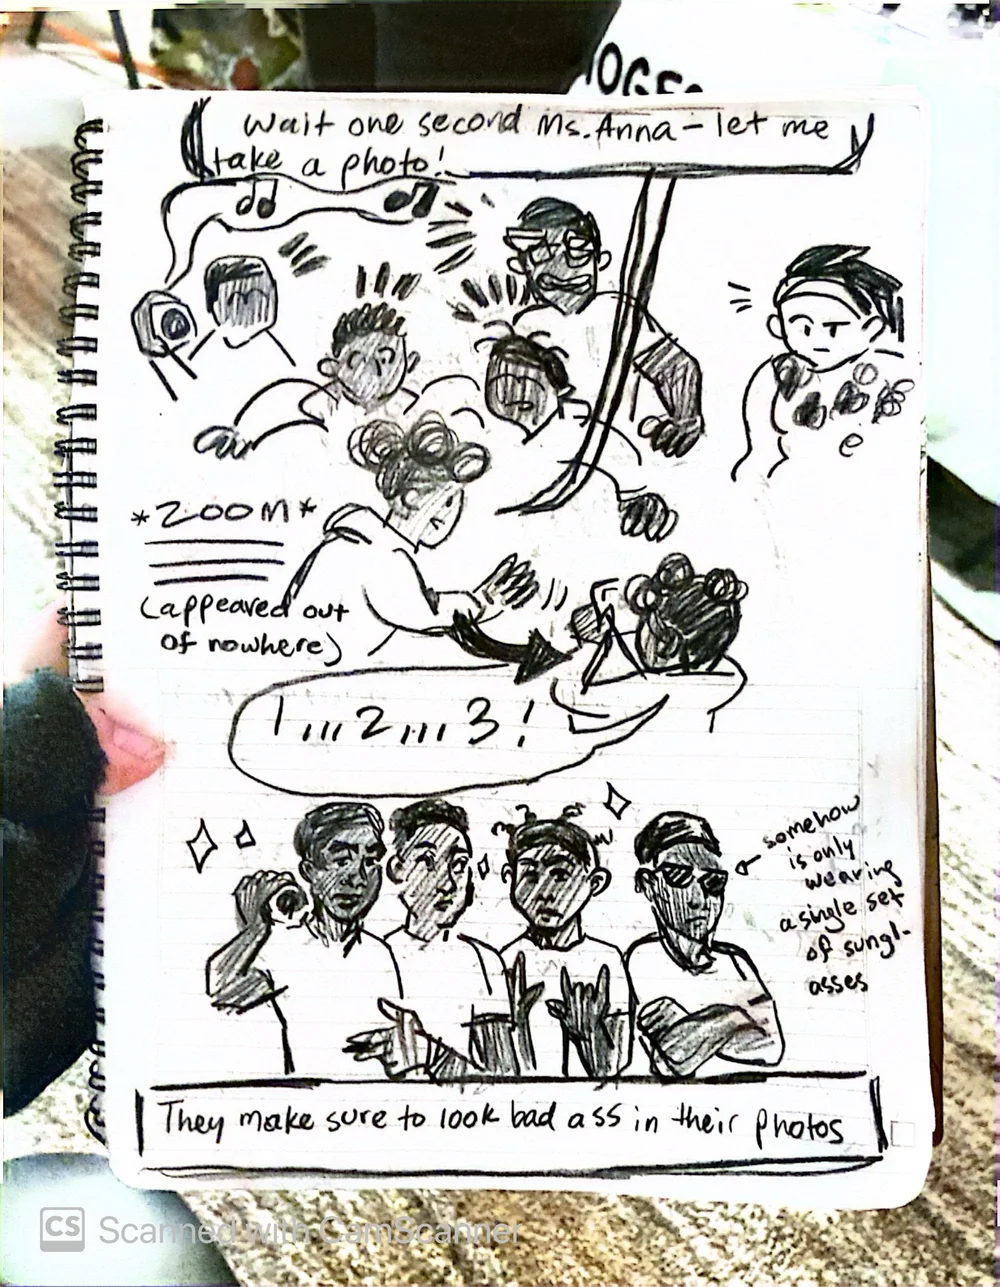 Wait one second Ms. Anna – let me
take a photo!
*ZOOM*
(appeared out
of nowhere)
1,,,,2,,,, 3!
somehow
is only
wearing
a single set
of sungl-
asses
They make sure to look bad ass in their photos
CS Scanned with CamScanner